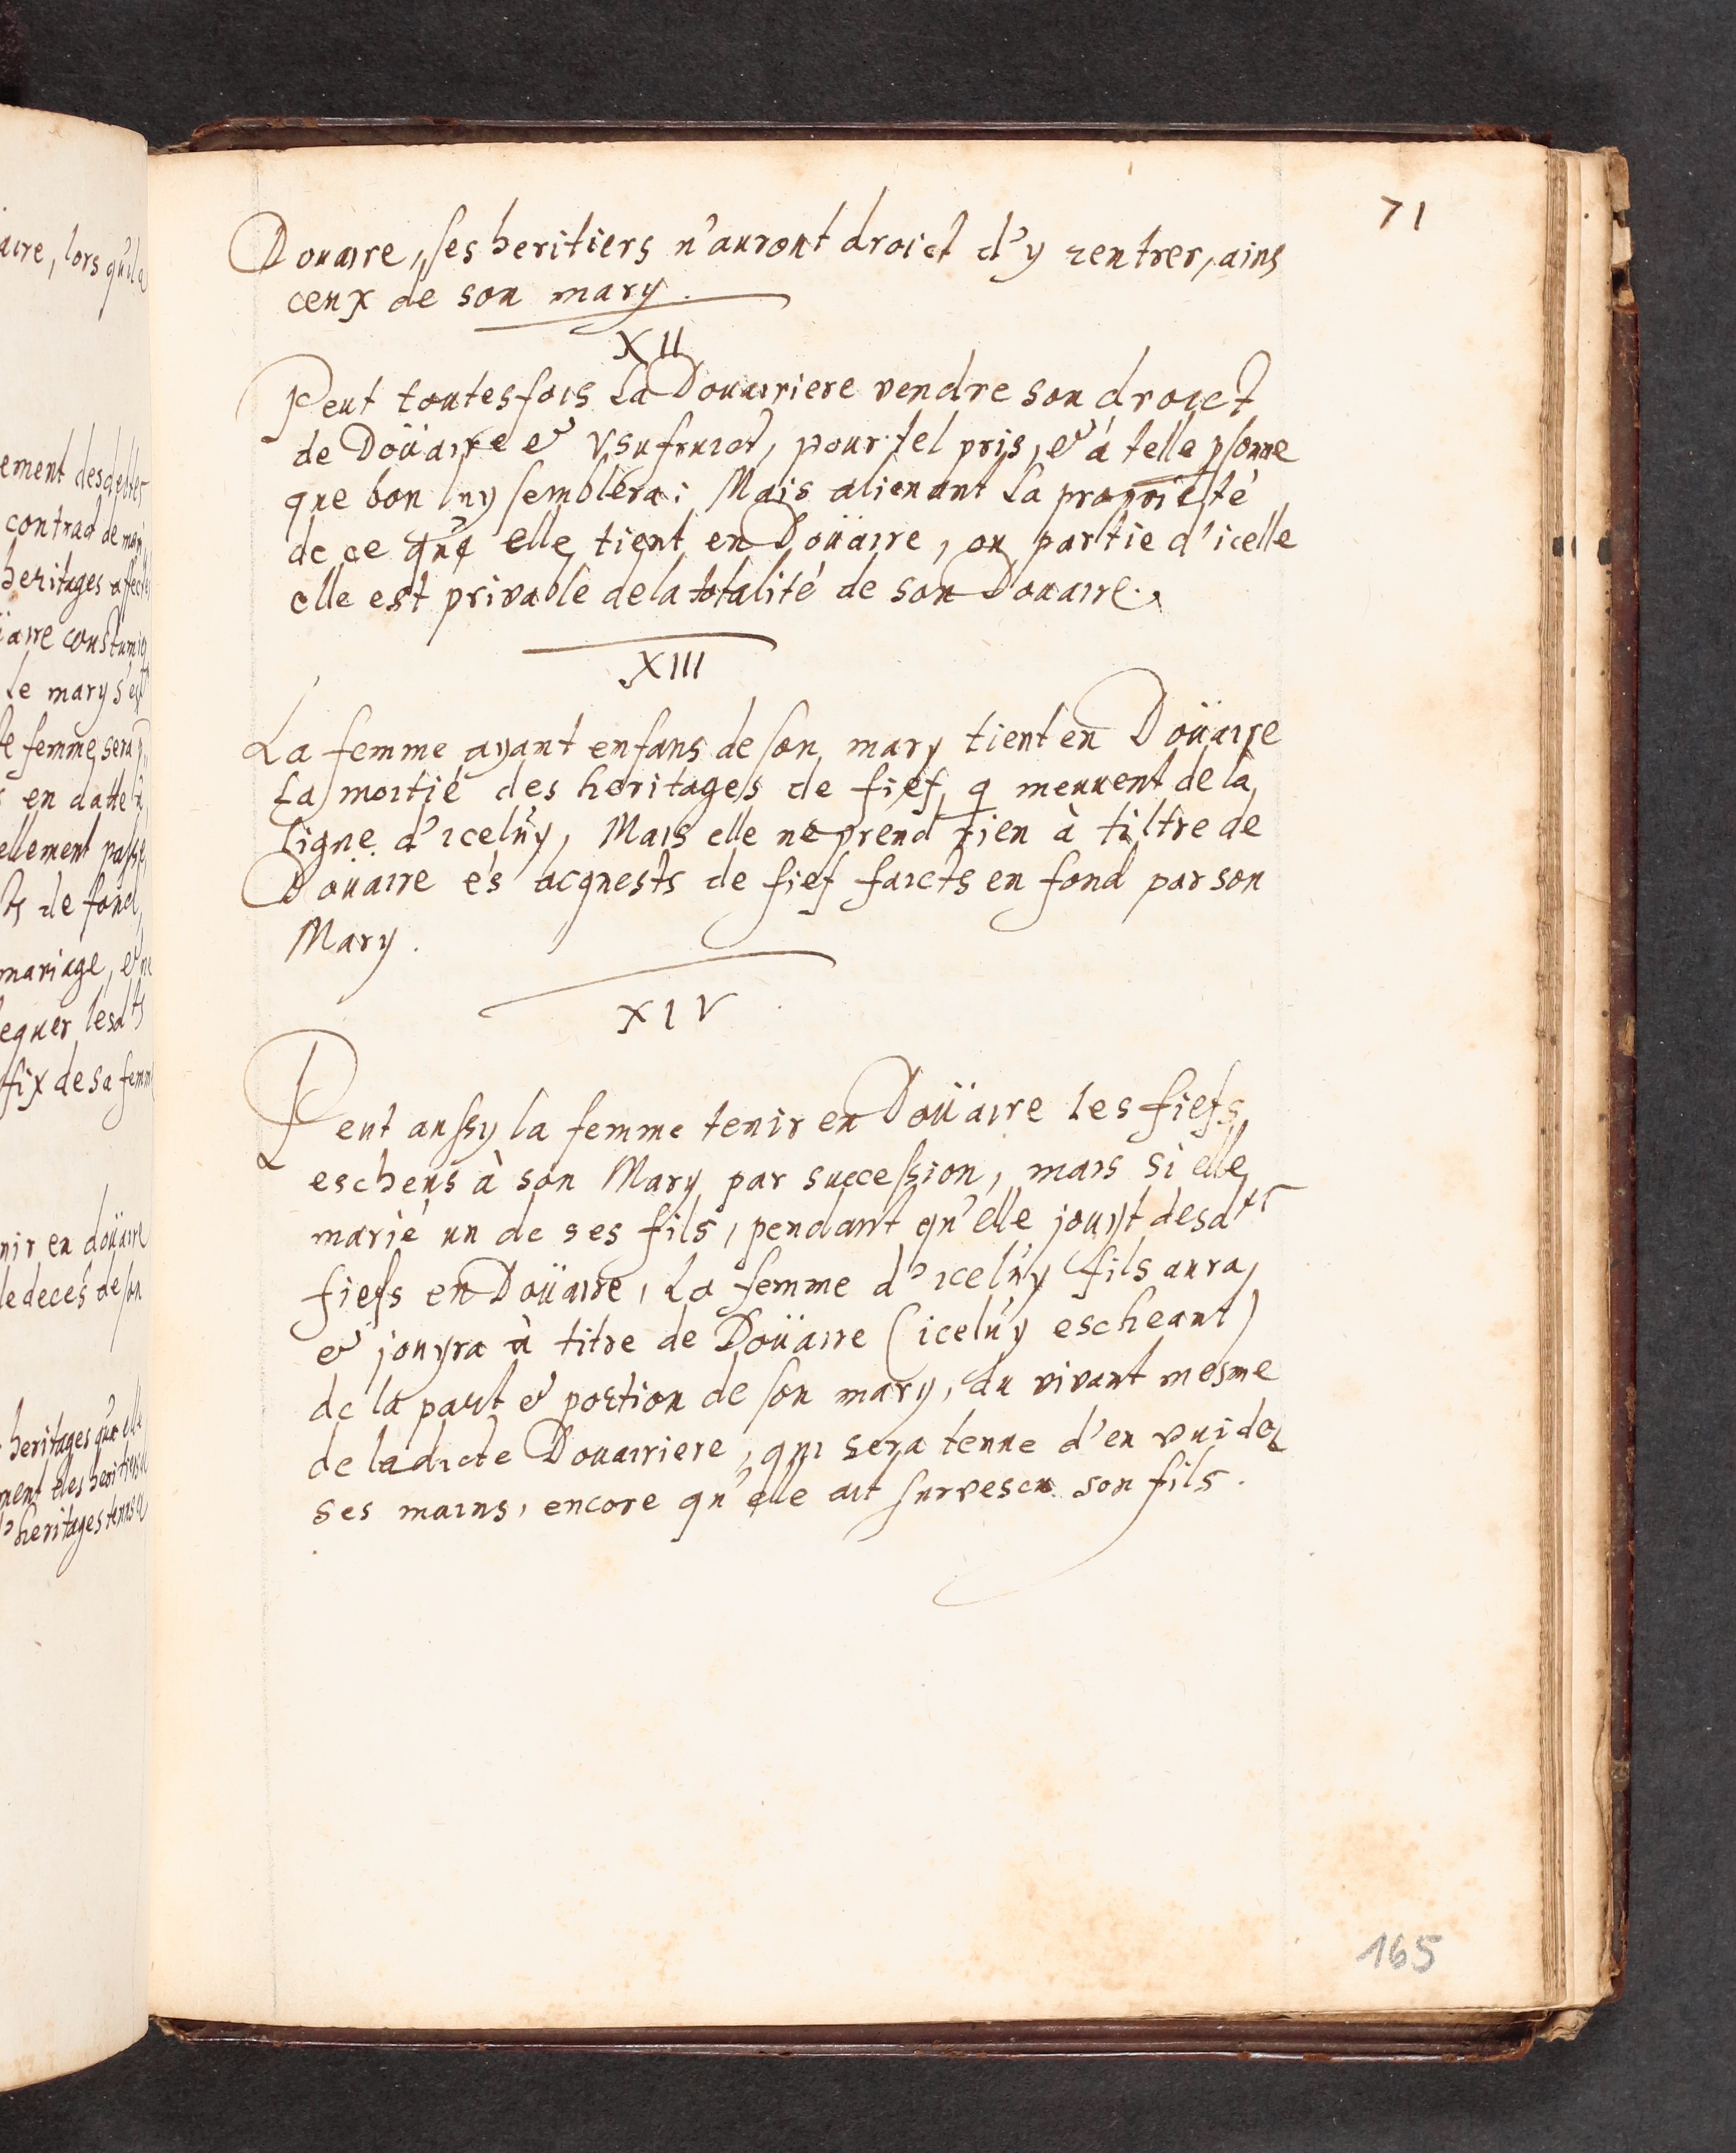 71
Douaire, ses heritiers n'auront droict d'y rentrer, ains
ceux de son mary.
XII
Peut toutesfois La Douairiere vendre son droict
de Doüaire & Vsufruict, pour tel pris, & à telle psonne
que bon luy semblera: Mais alienant La proprieté
de ce que elle tient en Doüaire, ou partie d'icelle
elle est privable de la totalité de son Douaire.
XIII
La femme ayant enfans de son mary tient en Doüaire
La moitié des heritages de fief, q meuvent de la
ligne d'icelüy, Mais elle ne prend rien à tiltre de
Doüaire és acquests de fief faicts en fond par son
Mary.
XIV
Peut aussy la femme tenir en Doüaire les fiefs
escheus à son Mary par succession, mais si elle
marie un de ses fils, pendant qu'elle jouyt desdtz
fiefs en Doüaire, La femme d'icelüy fils aura,
& jouyra à titre de Doüaire (icelüy escheant)
de la part & portion de son mary, du vivant mesme
de ladicte Douairiere, qui sera tenue d'en vuider
ses mains, encore qu'elle ait survescu son fils.
165
aire, lors qu'ila
ement des debtes
contract de mari
heritages affecte
le mary s'est
te femme sera
en datte
ellement passe
ts de fond
mariage, & ne
equer lesdts
fix de sa femm
nir en doüaire
le deces de son
heritages que elle
ment des heritiers
heritages tenus